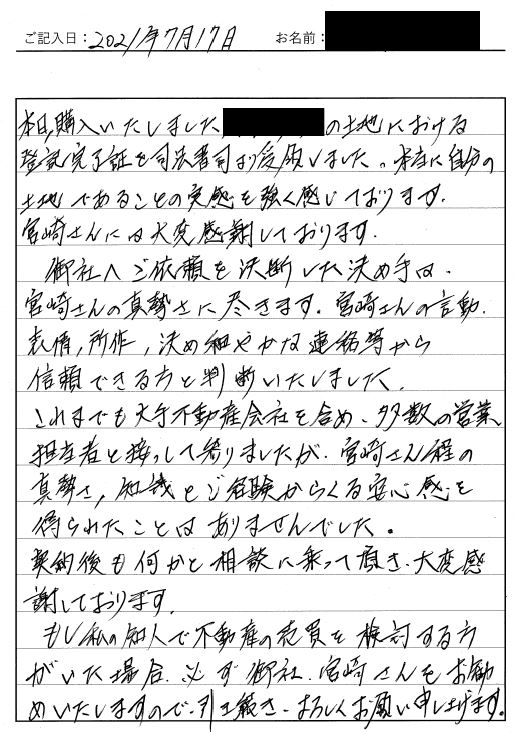 ご記入日：2021年7月17日 お名前：
本日購入いたしました の土地における
登記完了証を司法書司より受領しました。本当に自分の
土地であることの実感を強く感じております．
宮崎さんには大変感謝しております．
御社へご依頼を決断した決め手は．
宮崎さんの真勢さに尽きます．宮崎さんの言動．
表情，所作，決め細やかな連絡等から
信頼できる方と判断いたしました．
これまでも大手不動産会社を含め、多数の営業
担当者と接っして参りましたが、宮崎さん程の
真勢さ，知識とご経験からくる安心感を
得られたことはありませんでした。
契約後も何かと相談に乗って頂き、大変感
謝しております．
もし私の知人で不動産の売買を検討する方
がいた場合、必ず御社、宮崎さんをお勧
めいたしますので、引き続き、よろしくお願い申し上げます．